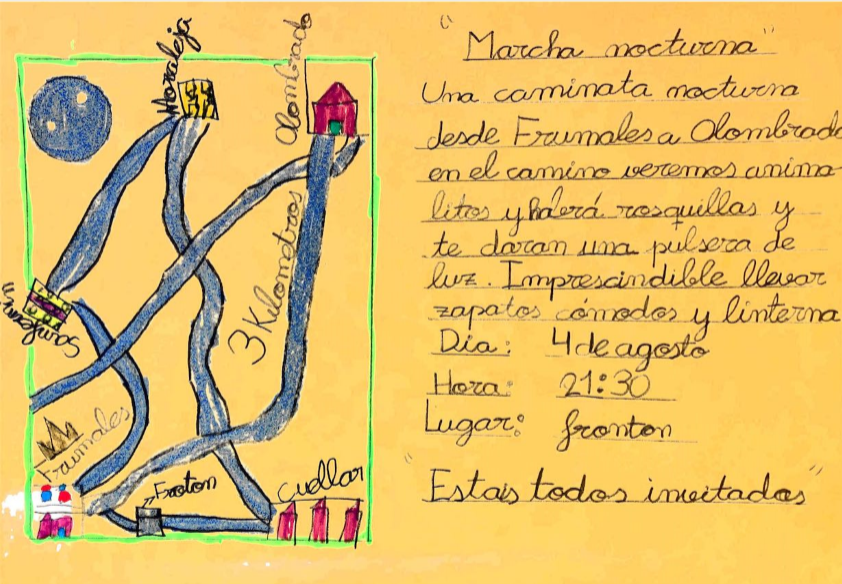 Moraleja
Olombrado
3 Kilometros
Frumales
Froton
Cuellar
"Marcha nocturna"
Una caminata nocturna
desde Frumales a Olombrado
en el camino veremos anima-
litos y haberá rosquillas y
te daran una pulsera de
luz. Imprescindible llevar
zapatos cómodos y linterna
Dia: 4 de agosto
Hora: 21:30
Lugar: fronton
"Estais todos invitados"